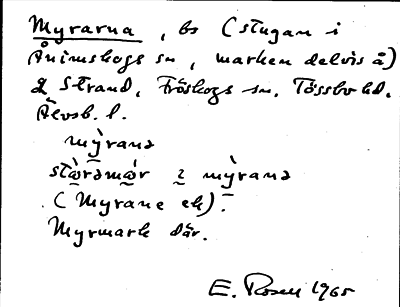 Myrarna, bs (stugan i
Ånimskogs sn, marken delvis å)
g Strand, Fröskogs sn. Tössbo hd.
Älvsb. l.
mỳrana
stœ̀rəmœ̀r i mỳrana
(Myrane ek).
Myrmark där.
E. Rosell 1965